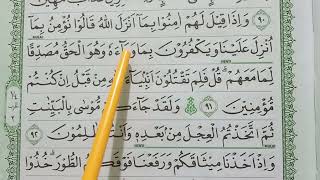 وَاِذَا قِيْلَ لَهُمْ اٰمِنُوْا بِمَآ اَنْزَلَ اللّٰهُ قَالُوْا نُؤْمِنُ بِمَآ
اُنْزِلَ عَلَيْنَا وَيَكْفُرُوْنَ بِمَا وَرَآءَهٗ وَهُوَ الْحَقُّ مُصَدِّقًا
لِّمَا مَعَهُمْ قُلْ فَلِمَ تَقْتُلُوْنَ اَنْۢبِيَآءَ اللّٰهِ مِنْ قَبْلُ اِنْ كُنْتُمْ
مُّؤْمِنِيْنَ ٩١ وَلَقَدْ جَآءَكُمْ مُّوْسٰى بِالْبَيِّنٰتِ
ثُمَّ اتَّخَذْتُمُ الْعِجْلَ مِنْۢ بَعْدِهٖ وَاَنْتُمْ ظٰلِمُوْنَ ٩٢
وَاِذْ اَخَذْنَا مِيْثَاقَكُمْ وَرَفَعْنَا فَوْقَكُمُ الطُّوْرَ خُذُوْا